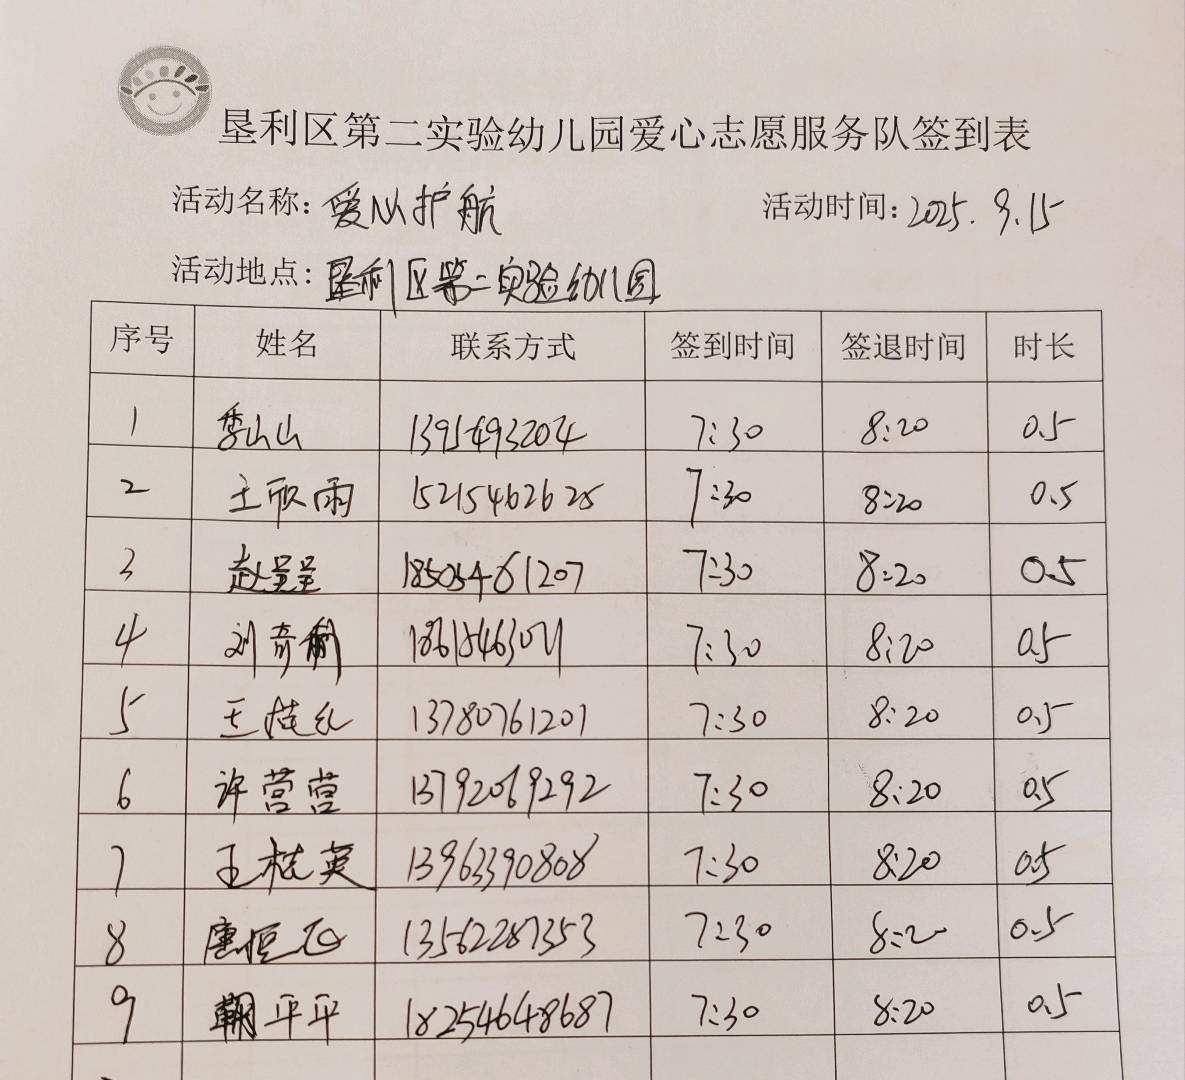 垦利区第二实验幼儿园爱心志愿服务队签到表
活动名称：爱心护航 活动时间：2025.9.15
活动地点：垦利区第二实验幼儿园
序号 姓名 联系方式 签到时间 签退时间 时长
1 李山山 1395493204 7:30 8:20 0.5
2 王欣雨 15215462625 7:30 8:20 0.5
3 赵呈呈 18505461207 7:30 8:20 0.5
4 刘奇 7:30 8:20 0.5
5 王 13780761201 7:30 8:20 0.5
6 许营营 13792069292 7:30 8:20 0.5
7 王桂英 13963390808 7:30 8:20 0.5
8 唐恒 13562287353 7:30 8:20 0.5
9 平平 18254648687 7:30 8:20 0.5